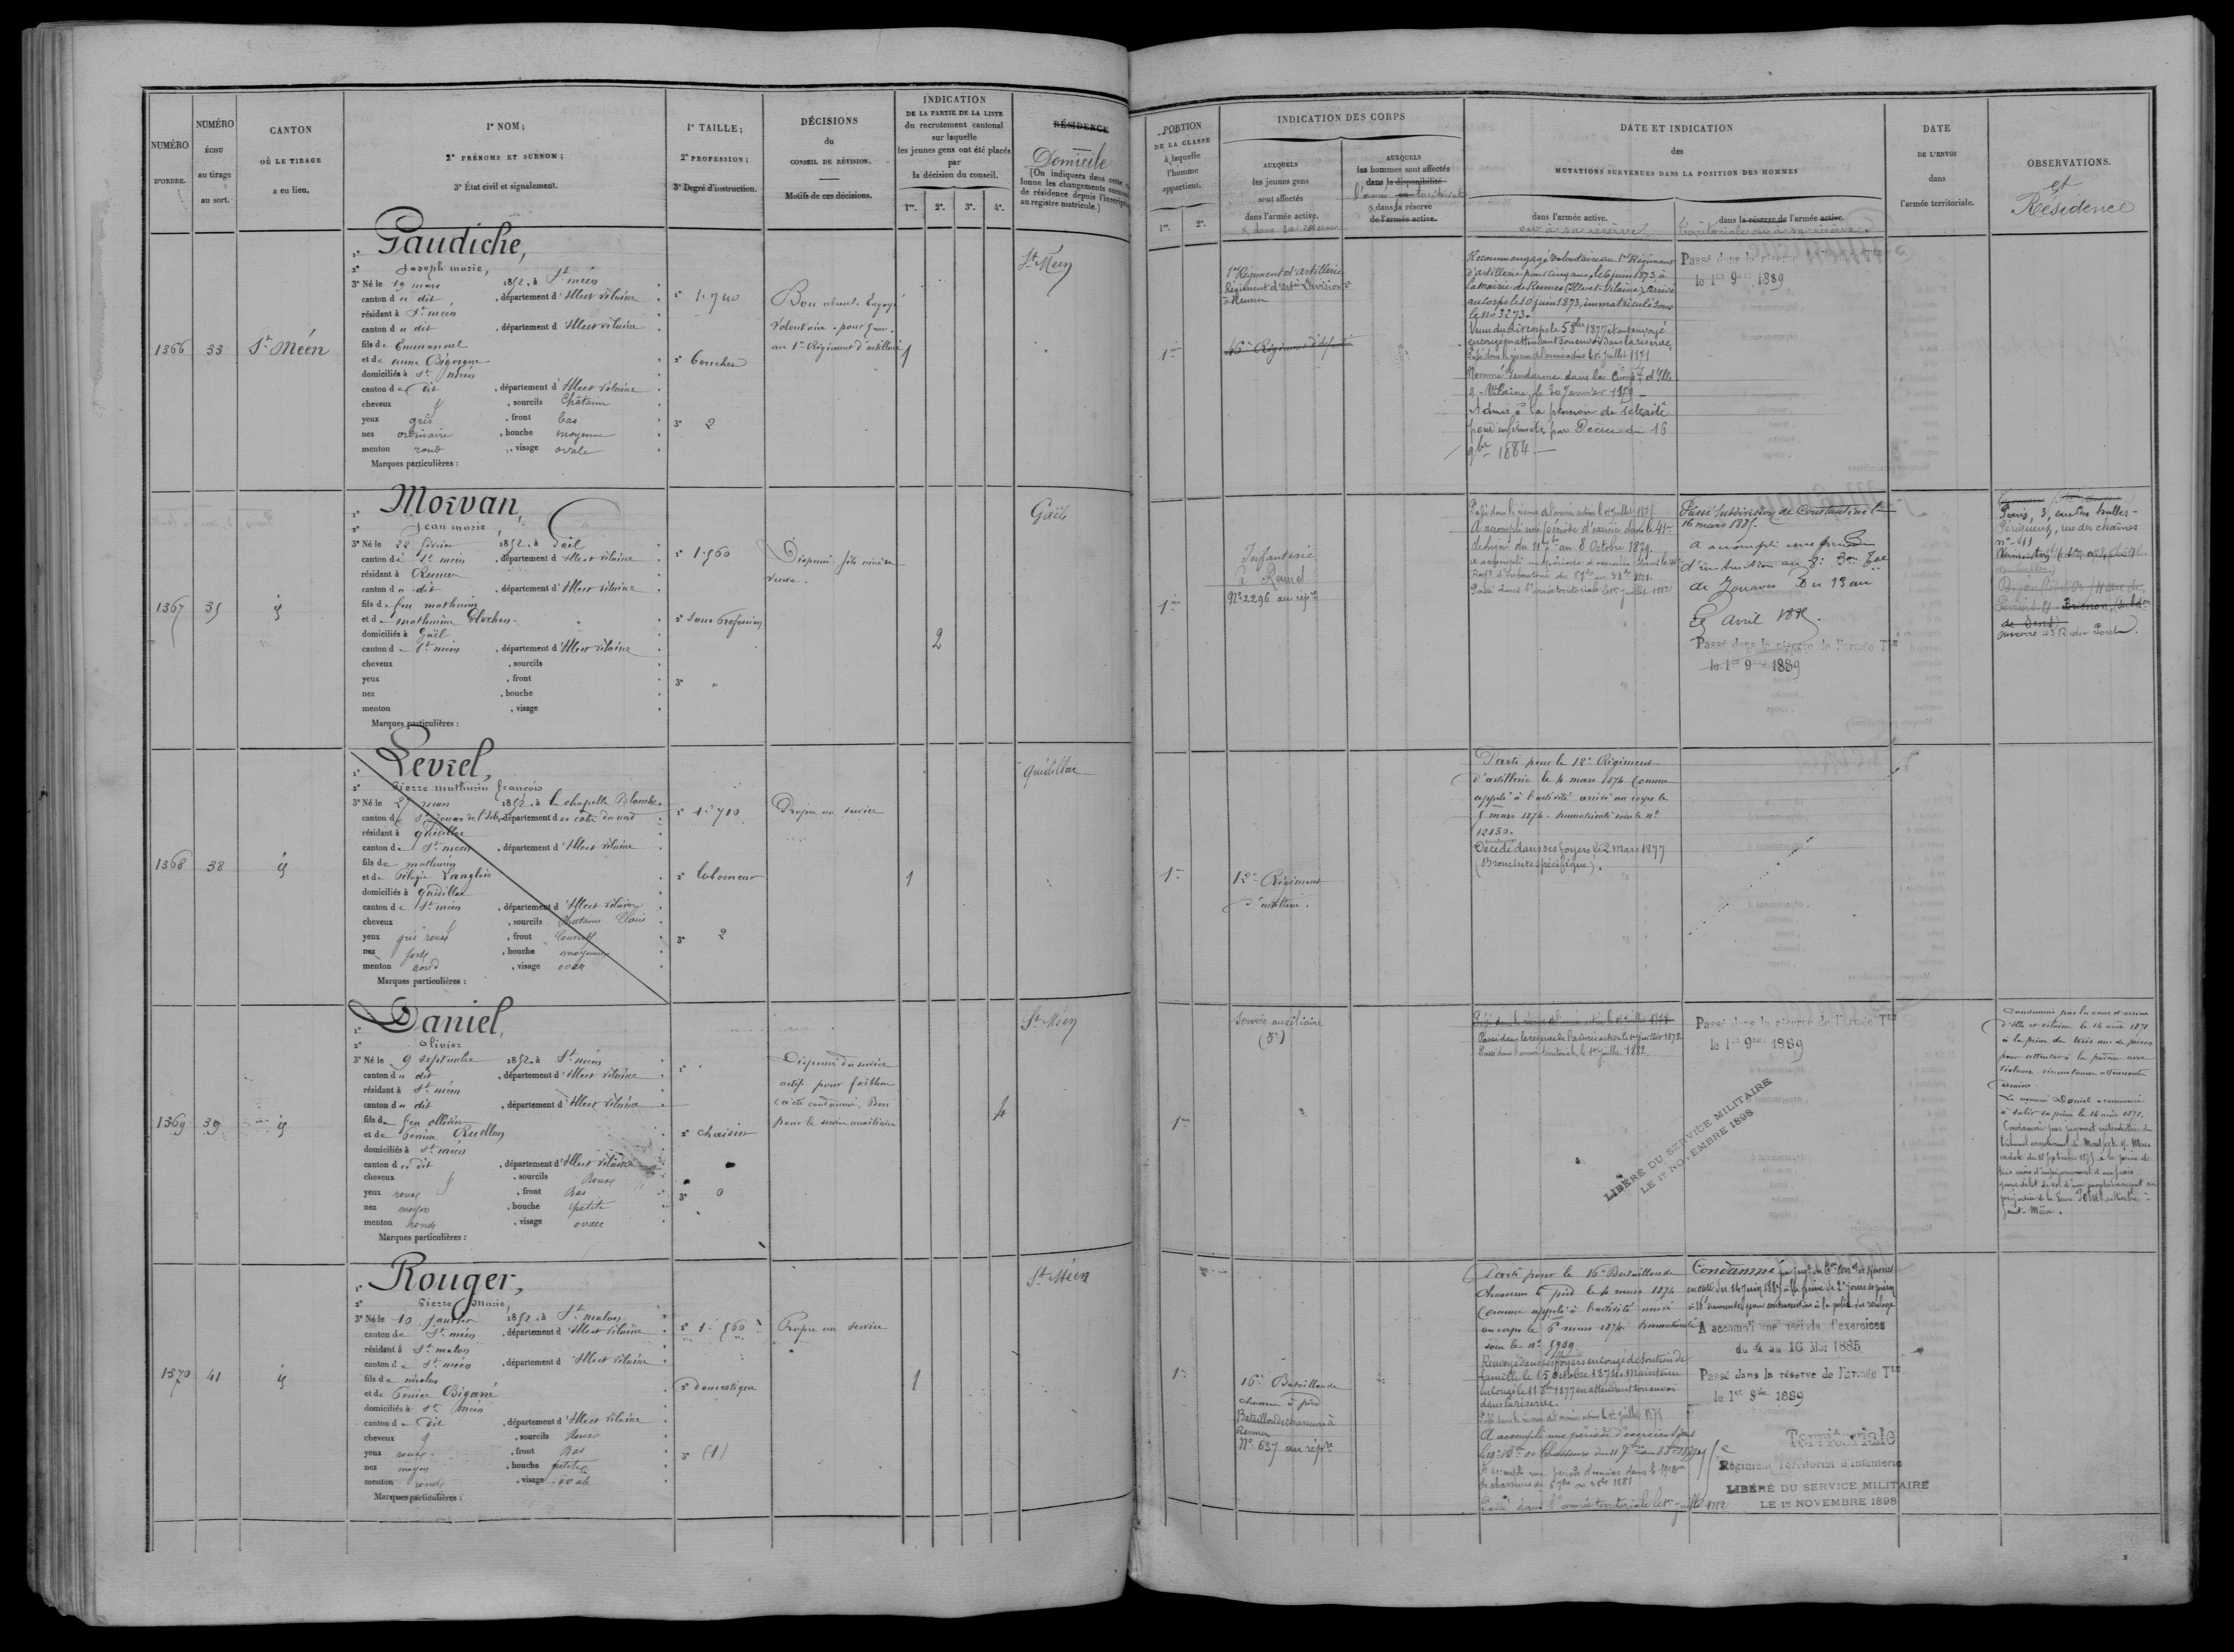 NUMÉRO
D'ORDRE.
NUMÉRO
ÉCHU
au tirage
au sort.
CANTON
OÙ LE TIRAGE
a eu lieu.
1° NOM;
2° PRÉNOMS ET SURNOM;
3° État civil et signalement.
1° TAILLE;
2° PROFESSION;
3° Degré d'instruction.
DÉCISIONS
du
CONSEIL DE RÉVISION.
Motifs de ces décisions.
INDICATION
DE LA PARTIE DE LA LISTE
du recrutement cantonal
sur laquelle
les jeunes gens ont été placés
par
la décision du conseil.
1re. 2e. 3e. 4e.
RÉSIDENCE
Domicile
(On indiquera dans cette
lonne les changements
de résidence depuis l'inscription
au registre matricule.)
PORTION
DE LA CLASSE
à laquelle
l'homme
appartient.
1re. 2e.
INDICATION DES CORPS
AUXQUELS
les jeunes gens
sont affectés
dans l'armée active.
& dans sa réserve
AUXQUELS
les hommes sont affectés
dans la disponibilité
ou
l'armée territoriale
dans la réserve
de l'armée active.
DATE ET INDICATION
des
MUTATIONS SURVENUES DANS LA POSITION DES HOMMES
dans l'armée active.
ou à sa réserve
dans la réserve de l'armée active.
territoriale ou à sa réserve.
DATE
DE L'ENVOI
dans
l'armée territoriale.
OBSERVATIONS.
et
Résidence
1366
33
St Méen
1° Gaudiche,
2° Joseph marie,
3° Né le 19 mars 1852, à St méen
canton du dit, département d'Ille et vilaine
résidant à St méen
canton du dit, département d'Ille et vilaine
fils de Emmanuel
et de anne Bigorgne
domiciliés à St méen
canton du dit, département d'Ille et vilaine
cheveux, sourcils Châtains
yeux gris, front bas
nez ordinaire, bouche moyenne
menton rond, visage ovale
Marques particulières :
1° 1.740
2° boucher
3° 2
Bon absent. Engagé
Volontaire pour 5 ans
au 1er Régiment d'artillerie
1
St Méen
1re
1er Régiment d'artillerie
Régiment d'Artie Divisionre
à Rennes
16e Régiment d'artillerie
Reconnu engagé volontaire au 1er Régiment
d'artillerie pour cinq ans, le 6 juin 1873 à
la mairie de Rennes (Ille-et-Vilaine), arrivé
au corps le 10 juin 1873, immatriculé sous
le no 3273.
Venu du dit corps le 5 8bre 1877 étant envoyé
en congé en attendant son envoi dans la réserve,
Passé dans la réserve de l'armée active le 1er Juillet 1878
Nommé Gendarme dans la Compie d'Ille
& Vilaine, le 30 Janvier 1879
Admis à la pension de retraite
pour infirmités par Décret du 16
9bre 1884.
Passé dans la réserve
le 1er 9bre 1889
1367
35
id
1° Morvan,
2° Jean marie
3° Né le 22 février 1852, à Gaël
canton de St méen, département d'Ille et vilaine
résidant à Rennes
canton du dit, département d'Ille et vilaine
fils de feu mathurin
et de mathurine Glochon
domiciliés à Gaël
canton de St méen, département d'Ille et vilaine
cheveux, sourcils
yeux, front
nez, bouche
menton, visage
Marques particulières :
1° 1.560
2° Sans Profession
3° "
Dispensé fils aîné de
veuve.
2
Gaël
1re
Infanterie
à Rennes
No 2296 au répre
Passé dans la réserve de l'armée active le 1er Juillet 1878
A accompli une période d'exercices dans le 41e
de ligne du 11 7bre au 8 Octobre 1879.
Passé dans l'armée territoriale le 1er Juillet 1882
Passé Subdivision de Constantine le
16 mars 1885.
A accompli une période
d'instruction au 3e Bon Tal
de Zouaves Du 13 au
Avril 1885.
Passé dans la réserve de l'armée Tle
le 1er 9bre 1889
Périgueux, rue des chaînes
no 11
1368
38
id
1° Levrel,
2° Pierre mathurin françois
3° Né le 25 mars 1852, à la chapelle Blanche
canton de St Jouan de l'Isle, département des côtes du nord
résidant à quédillac
canton de St méen, département d'Ille et vilaine
fils de mathurin
et de Pélagie Langlois
domiciliés à quédillac
canton de St méen, département d'Ille et vilaine
cheveux, sourcils Chatains Clairs
yeux gris roux, front Couvert
nez fort, bouche moyenne
menton rond, visage ovale
Marques particulières :
1° 1.710
2° laboureur
3° 2
Propre au service
1
quédillac
1re
12e Régiment
d'artillerie.
Parti pour le 12e Régiment
d'artillerie le 4 mars 1874 Comme
appelé à l'activité arrivé au corps le
5 mars 1874. Immatriculé sous le no
12830.
Décédé dans ses foyers le 2 mars 1877
(Bronchite spécifique).
1369
39
id
1° Daniel,
2° Olivier
3° Né le 9 septembre 1852, à St méen
canton du dit, département d'Ille et vilaine
résidant à St méen
canton du dit, département d'Ille et vilaine
fils de feu
et de Ruellan
domiciliés à St méen
canton du dit, département d'Ille et vilaine
cheveux, sourcils Roux
yeux roux, front Bas
nez moyen, bouche petite
menton rond, visage ovale
Marques particulières :
2° chaisier
3° 0
Dispensé du service
actif pour faiblesse
a été condamné. Bon
pour le service auxiliaire
4
St Méen
1re
Service auxiliaire
Passé dans la réserve de l'armée active le 1er Juillet 1878
Passé dans la réserve de l'armée active le 1er Juillet 1878
Passé dans l'armée territoriale, le 1er Juillet 1882
Passé dans la réserve de l'Armée Tle
le 1er 9bre 1889
LIBÉRÉ DU SERVICE MILITAIRE
LE 1er NOVEMBRE 1898
Condamné par la cour d'assises
d'Ille et vilaine le 14 août 1871
à la peine de trois ans de prison
pour attentat à la pudeur avec
violence circonstances atténuantes
admises.
Le nommé Daniel a commencé
à subir sa peine le 14 août 1871.
1370
41
id
1° Rouger,
2° Pierre Marie,
3° Né le 10 janvier 1852, à St malon
canton de St méen, département d'Ille et vilaine
résidant à St malon
canton de St méen, département d'Ille et vilaine
fils de nicolas
et de Bigarré
domiciliés à St méen
canton du dit, département d'Ille et vilaine
cheveux, sourcils Roux
yeux roux, front Bas
nez moyen, bouche petite
menton rond, visage ovale
Marques particulières :
1° 1.560
2° domestique
3° (1)
Propre au service
1
St Méen
1re
16e Bataillon de
chasseurs à pied
Bataillon de chasseurs à
Rennes
No 637 au répre
Parti pour le 16e Bataillon de
chasseurs à pied le 4 mars 1874
Comme appelé à l'activité arrivé
au corps le 6 mars 1874. Immatriculé
sous le no 5959
Renvoyé dans ses foyers en congé de soutien de
famille le 15 octobre 1874. Maintenu
en congé le 11 8bre 1877 en attendant son envoi
dans la réserve.
Passé dans la réserve de l'armée active le 1er Juillet 1878
A accompli une période d'exercices dans
Passé dans l'armée territoriale le 1er juillet 1882
Condamné
A accompli une période d'exercices
du 4 au 16 Mai 1885
Passé dans la réserve de l'armée Tle
le 1er 9bre 1889
Territoriale
Régiment Territorial d'Infanterie
LIBÉRÉ DU SERVICE MILITAIRE
LE 1er NOVEMBRE 1898